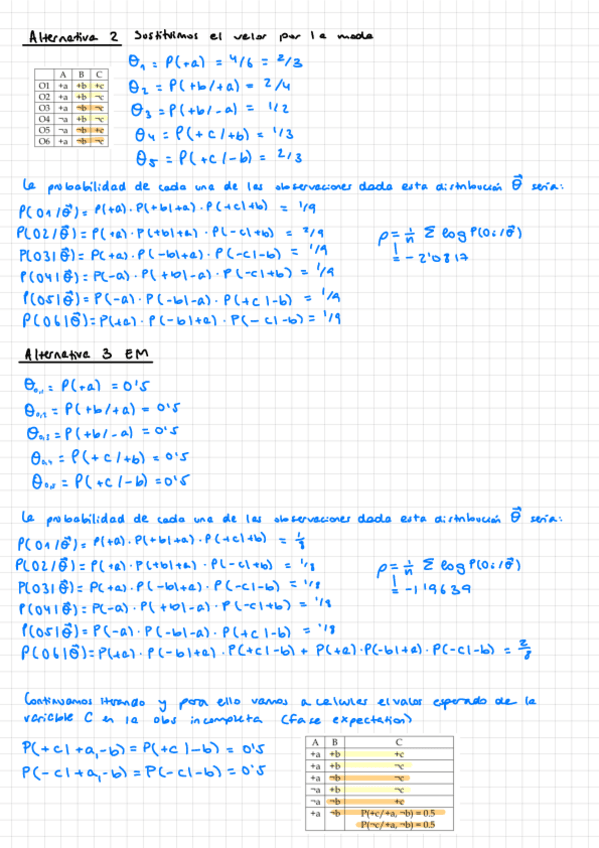 Alternativa 2 Sustituimos el valor por la moda
A B C
O1 +a +b +c
O2 +a +b ¬c
O3 +a ¬b ¬c
O4 ¬a +b ¬c
O5 ¬a ¬b +c
O6 +a ¬b ¬c
θ₁ = P(+a) = 4/6 = 2/3
θ₂ = P(+b/+a) = 2/4
θ₃ = P(+b/-a) = 1/2
θ4 = P(+c/+b) = 1/3
θ5 = P(+c/-b) = 2/3
La probabilidad de cada una de las observaciones dada esta distribución θ⃗ sería:
P(O1/θ⃗) = P(+a) · P(+b|+a) · P(+c|+b) = 1/9
P(O2/θ⃗) = P(+a) · P(+b|+a) · P(-c|+b) = 2/9
P(O3|θ⃗) = P(+a) · P(-b|+a) · P(-c|-b) = 1/9
P(O4|θ⃗) = P(-a) · P(+b|-a) · P(-c|+b) = 1/9
P(O5|θ⃗) = P(-a) · P(-b|-a) · P(+c|-b) = 1/9
P(O6|θ⃗) = P(+a) · P(-b|+a) · P(-c|-b) = 1/9
ρ = 1/n Σ log P(Oi/θ⃗)
= -2'0817
Alternativa 3 EM
θ₀,₁ = P(+a) = 0'5
θ₀,₂ = P(+b/+a) = 0'5
θ₀,₃ = P(+b/-a) = 0'5
θ₀,₄ = P(+c/+b) = 0'5
θ₀,₅ = P(+c/-b) = 0'5
La probabilidad de cada una de las observaciones dada esta distribución θ⃗ sería:
P(O1/θ⃗) = P(+a) · P(+b|+a) · P(+c|+b) = 1/8
P(O2/θ⃗) = P(+a) · P(+b|+a) · P(-c|+b) = 1/8
P(O3|θ⃗) = P(+a) · P(-b|+a) · P(-c|-b) = 1/8
P(O4|θ⃗) = P(-a) · P(+b|-a) · P(-c|+b) = 1/8
P(O5|θ⃗) = P(-a) · P(-b|-a) · P(+c|-b) = 1/8
P(O6|θ⃗) = P(+a) · P(-b|+a) · P(+c|-b) + P(+a) · P(-b|+a) · P(-c|-b) = 2/8
ρ = 1/n Σ log P(Oi/θ⃗)
= -1'9639
Continuamos iterando y para ello vamos a calcular el valor esperado de la
variable C en la obs incompleta (fase expectation)
P(+c|+a,-b) = P(+c|-b) = 0'5
P(-c|+a,-b) = P(-c|-b) = 0'5
A B C
+a +b +c
+a +b ¬c
+a ¬b ¬c
¬a +b ¬c
¬a ¬b +c
+a ¬b P(+c/+a, ¬b) = 0.5
P(¬c/+a, ¬b) = 0.5